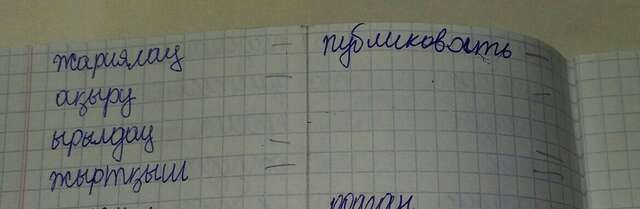 жариялау — публиковать —
ақыру —
ырылдау —
жыртқыш —